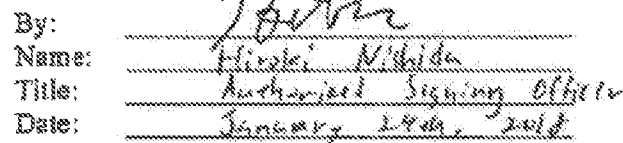 By:
Name: Hiroki Nishida
Title: Authorized Signing Officer
Date: January 24th, 2018